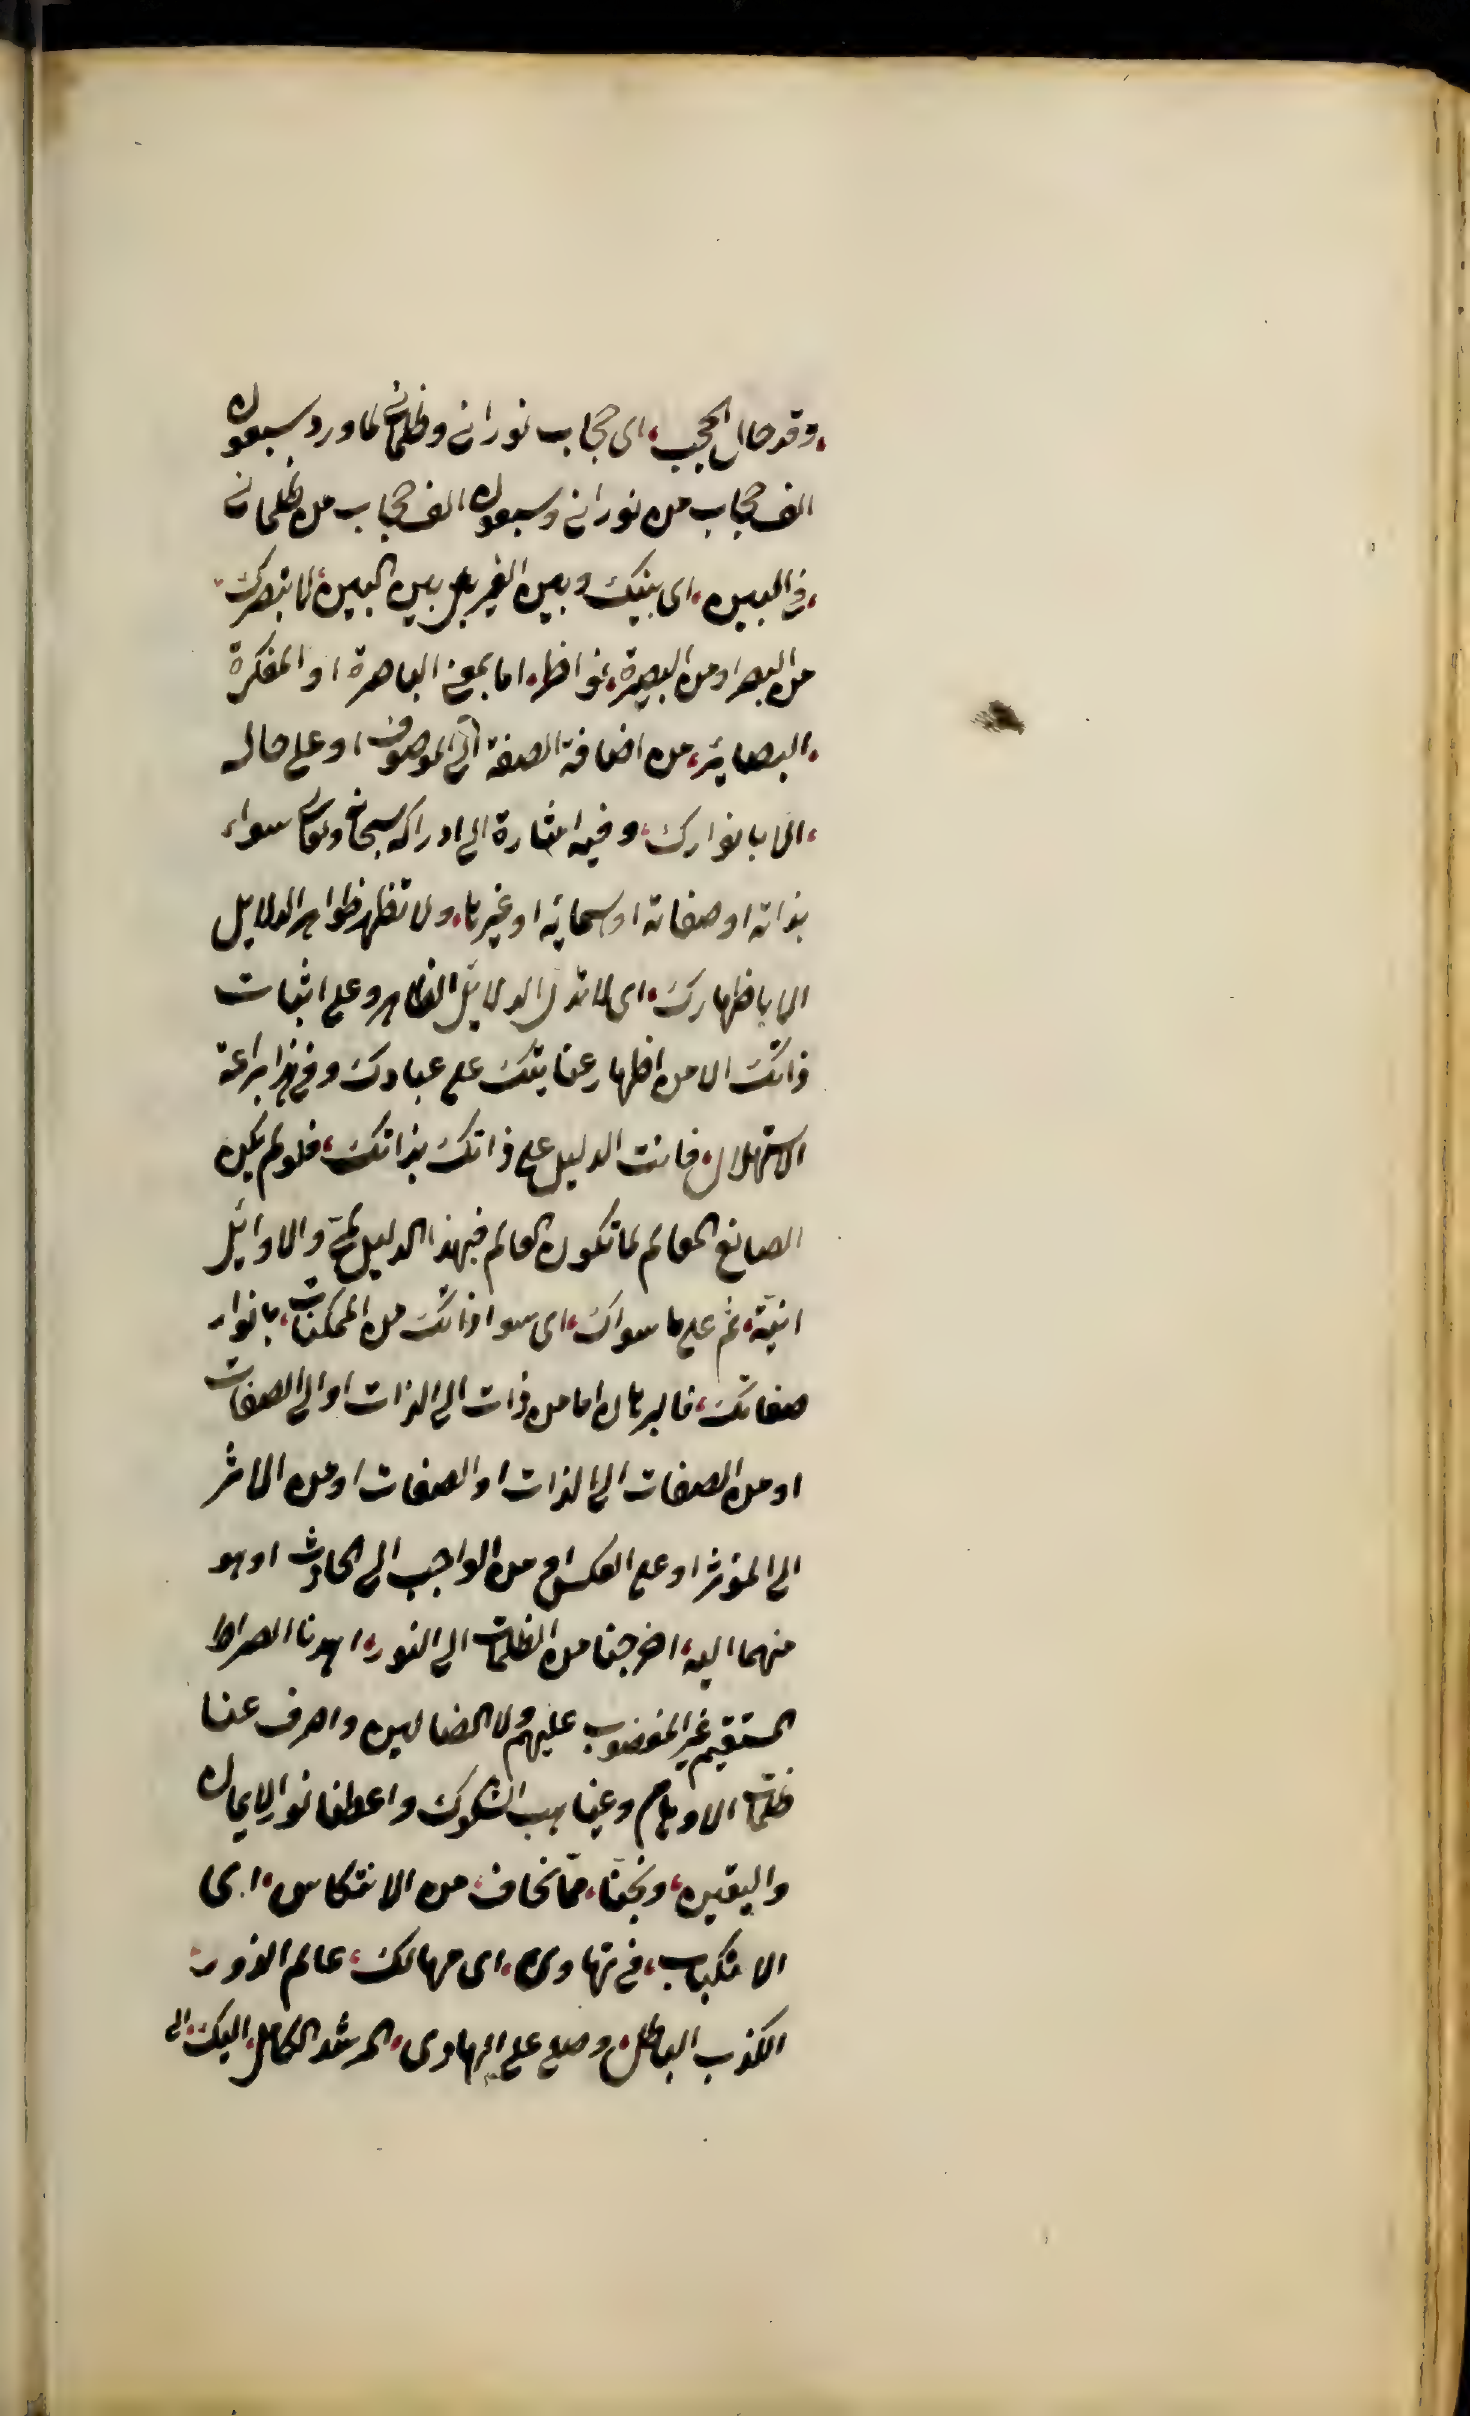 وقد حال الحجب، اى حجاب نورانى وظلمانى لما ورد سبعون
الف حجاب من نورانى وسبعون الف حجاب من ظلمانى
فى البين، اى بينك وبين الغير بل بين البين، لا تبصرك
من البصر او من البصيرة، نواظر، اما بمعنى الباصرة او المفكرة
البصائر، من اضافة الصفة الى الموصوف او على حاله
الا بانوارك، وفيه اشارة الى ادراكه سبحانه وتعالى سواء
بذاته او صفاته او سمائه او غيرها، ولا تظهر ظواهر الدلايل
الا باظهارك، اى لا تدل الدلايل الظاهرة على اثبات
ذاتك الا من اظهار عنايتك على عبادك وفى هذا براعة
الاستهلال، فانت الدليل على ذاتك بذاتك، فلو لم يكن
الصانع العالم لما تكون العالم فبهذا الدليل لمى والاوائل
انية، ثم على ما سواك، اى سوا ذاتك من الممكنات، بانوار
صفاتك، فالبرهان اما من ذات الى الذات او الى الصفات
او من الصفات الى الذات او الصفات او من الاثر
الى المؤثر او على العكس اى من الواجب الى الحادث او هو
منهما اليه، اخرجنا من الظلمات الى النور، اهدنا الصراط
المستقيم غير المغضوب عليهم ولا الضالين واصرف عنا
ظلمات الاوهام وغياهب الشكوك واعطنا نور الايمان
واليقين، ونجنا، مما نخاف، من الانتكاس، اى
الانكباب، فى تهاوى، اى مهالك، عالم الزور،
الكذب الباطل، وصلى على الهادى، المرشد الكامل، اليك، الى